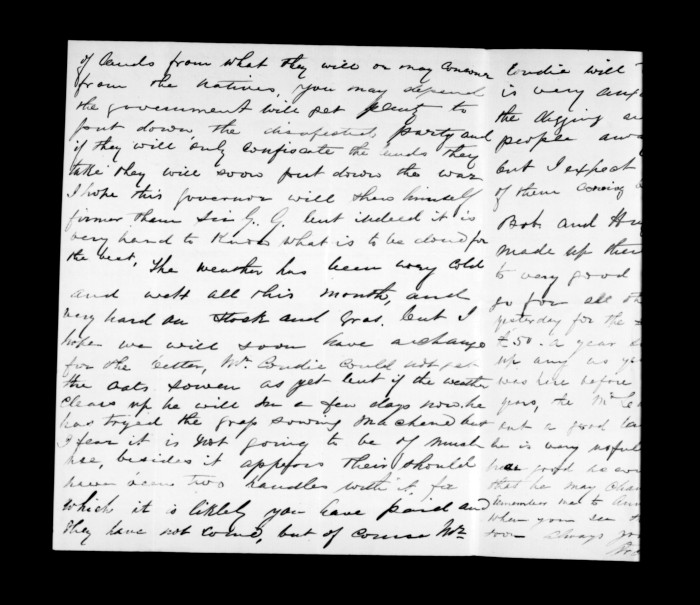 of lands from what they will or may concour
from the natives, you may depend
the government will get plenty to
put down the disafected party and
if they will only confiscate the lands they
take they will soon put down the war
I hope this governor will shew himself
firmer than Sir G. G. but indeed it is
very hard to know what is to be done for
the best, The weather has been very cold
and wett all this month, and
very hard on stock and gras. but I
hope we will soon have a change
for the better, Mr. Condie could not get
the oats sowen as yet but if the weather
clears up he will in a few days now. he
has tryed the gras sowing machene but
I fear it is not going to be of much
use, besides it appears their should
have two handles with it for
which it is likely you have paid and
they have not come, but of course Mr.
Condie will
is very
the digging
people
but I expect
of them coming
Bob and
made up their
to very good
go for all
yesterday for the
£50. a year
up any as
was here before
years, the Mr.
but a good
he is very usful
has good
that he may
Remember me to
when you see
soon always